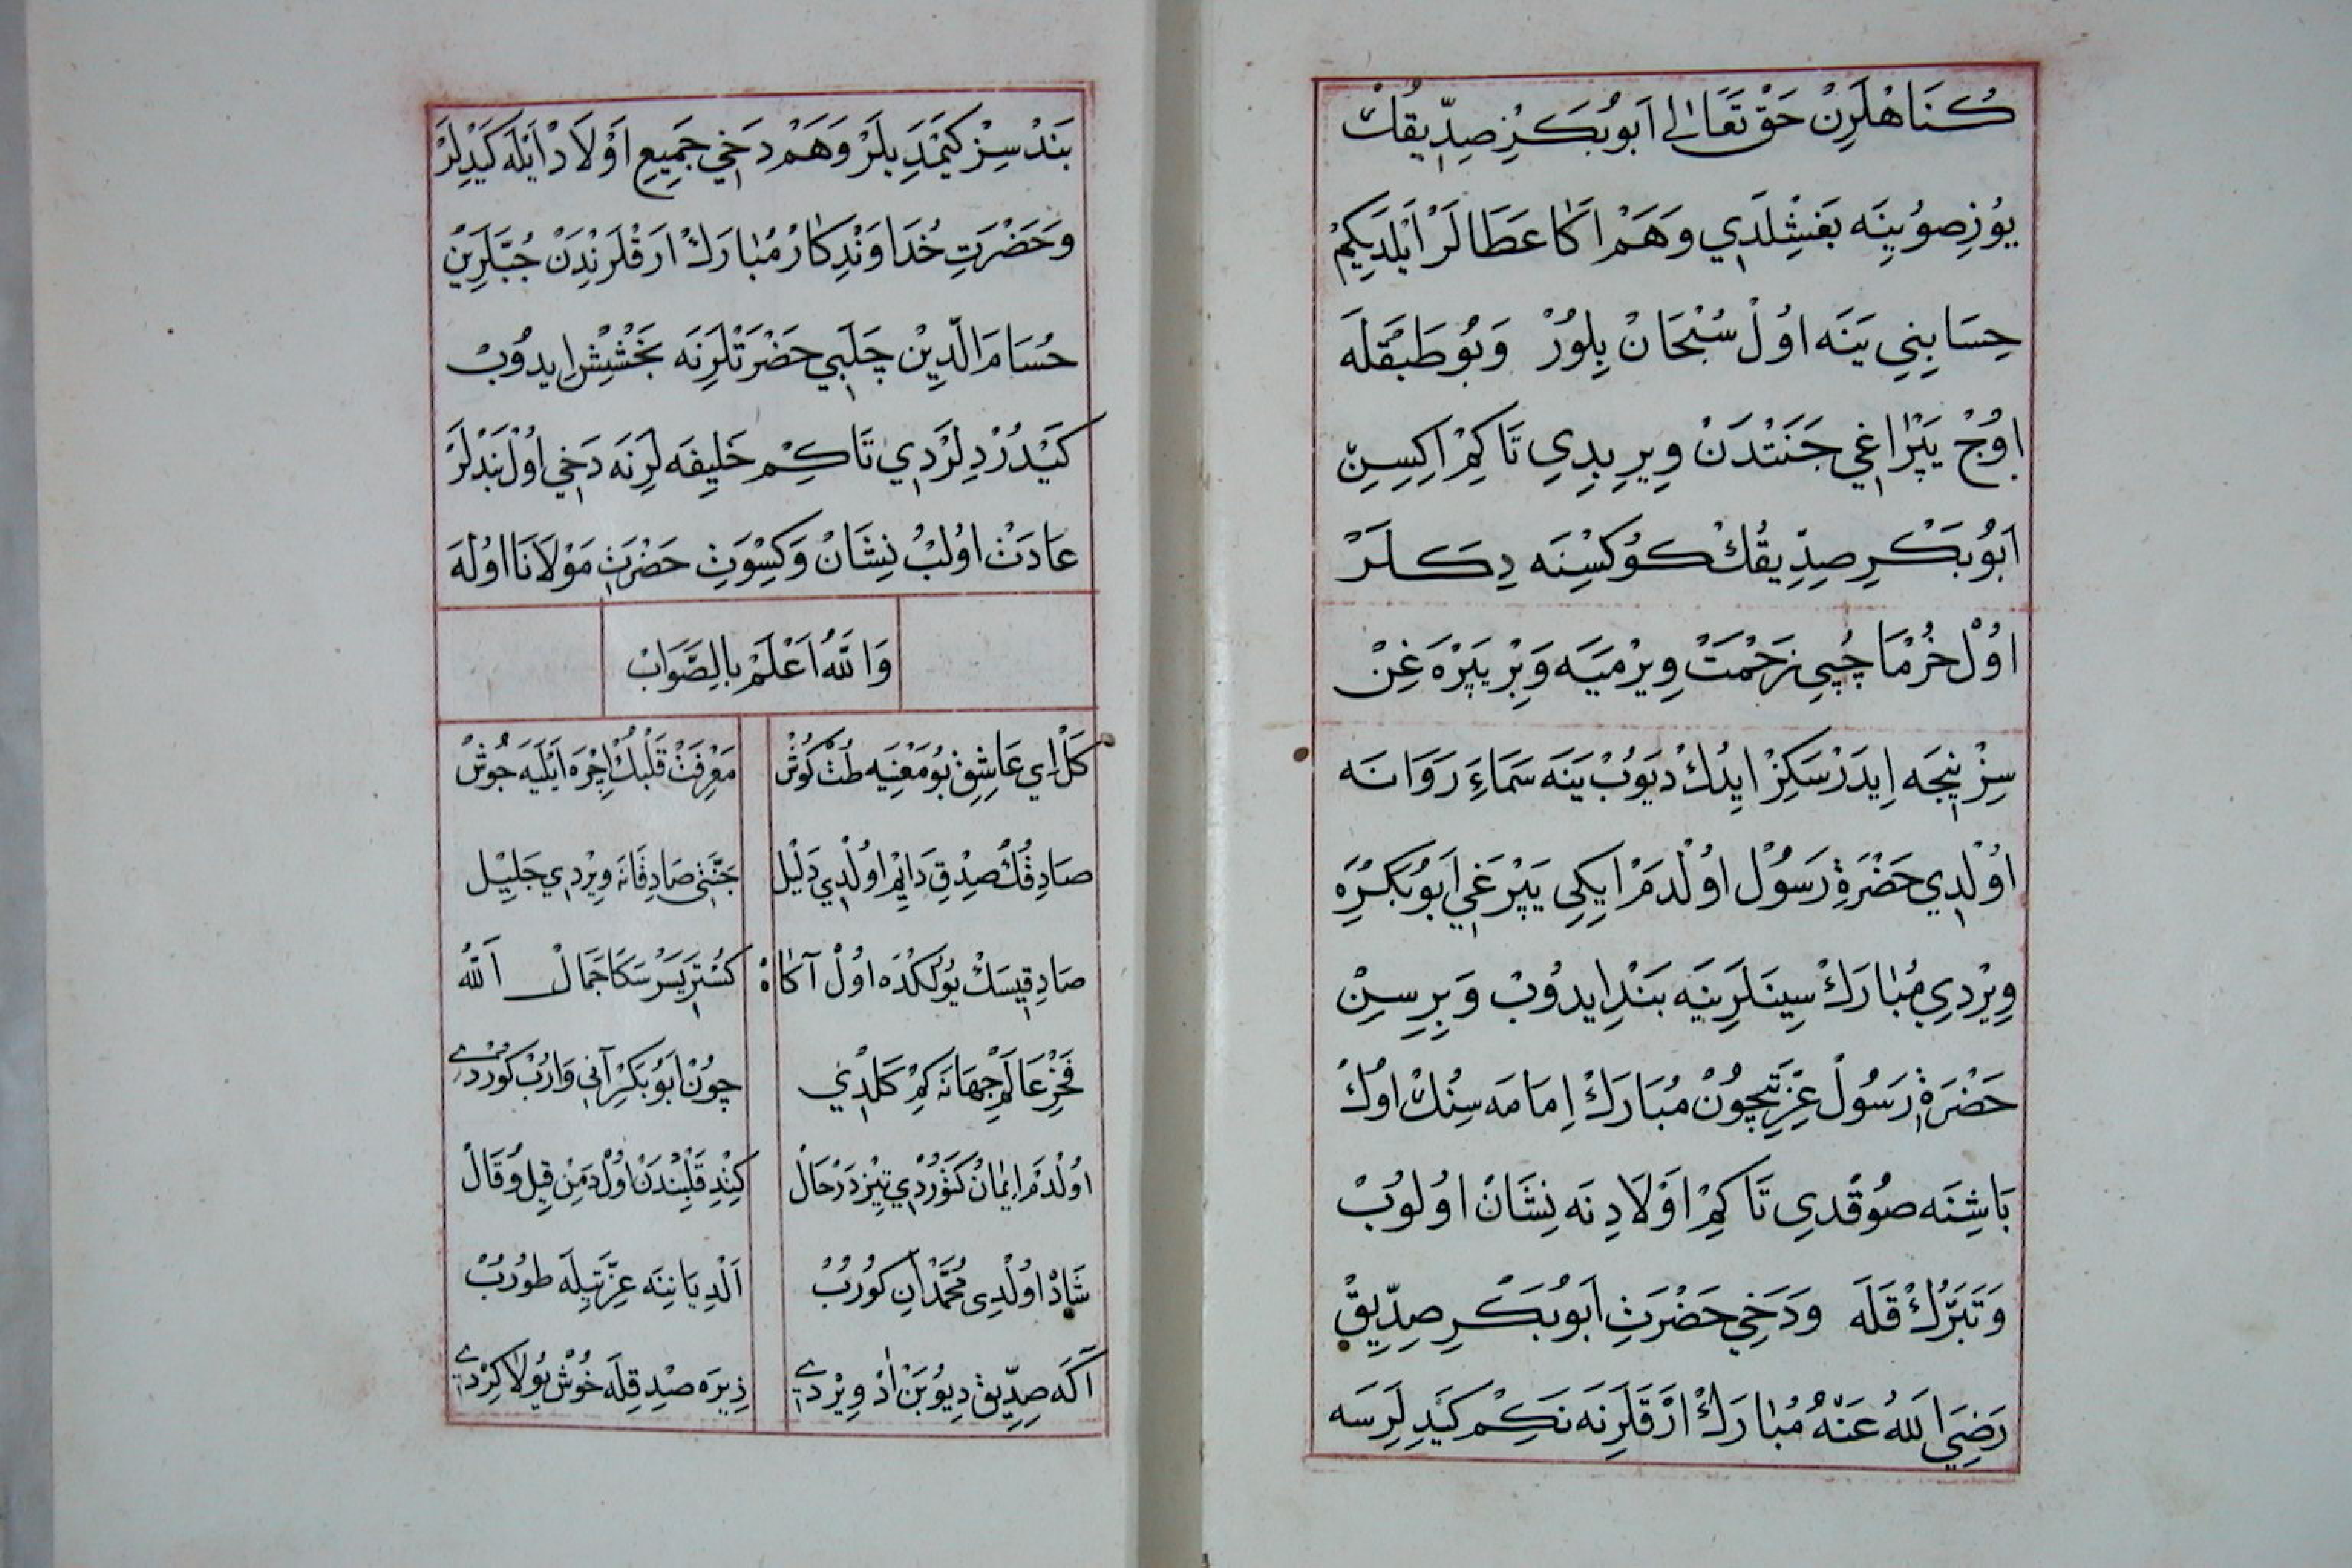 كُنَاهْلَرِنْ حَقْ تَعَالٰى اَبُو بَكَرِ صِدِّيقُكْ
يُوزِصُويِنَه بَغِشْلَدِي وَهَمْ اَكَا عَطَالَرْ اَيْلَدِيكِمْ
حِسَابِنِي يَنَه اُولْ سُبْحَانْ بِلُورْ وَبُو طَبَقْلَه
اُوچْ يَپْرَاغِي جَنَتْدَنْ وِيرِيدِي تَا كِمْ اِكِيسِنْ
اَبُو بَكْرِ صِدِّيقُكْ كُوكْسِنَه دِكَلَرْ
اُولْ خُرْمَاچِيي زَحْمَتْ وِيرْمَيَه وَبِرْ يَپْرَه غِنْ
سِزْ نِيجَه اِيدَرْسَكِزْ اِيدُكْ دِيُوبْ يَنَه سَمَاءَ رَوَانَه
اُولْدِي حَضْرَةِ رَسُولْ اُولْدَمْ اِيكِي يَپْرَغِي اَبُو بَكْرَه
وِيرْدِي مُبَارَكْ سِينَلَرِينَه بَنْد اِيدُوبْ وَبِرِيسِنْ
حَضْرَةِ رَسُولْ عِزَّتِيچُونْ مُبَارَكْ اِمَامَه سِنُكْ اُوكْ
بَاشِنَه صُوقْدِي تَا كِمْ اَوْلَادِنَه نِشَانْ اُولُوبْ
وَتَبَرُّكْ قَلَه وَدَخِي حَضْرَتِ اَبُو بَكْرِ صِدِّيقْ
رَضِيَ اللهُ عَنْهُ مُبَارَكْ اَرْقَلَرِنَه نَكِمْ كَيْدِلَرِسَه
بَنْدْسِزْ كَيْمَدِيلَرْ وَهَمْ دَخِي جَمِيعِ اَوْلَادْ اَيْلَه كَيْدِلَرْ
وَحَضْرَتِ خُدَاوَنْدِكَارْ مُبَارَكْ اَرْقَلَرِنْدَنْ جُبَّلَرِينْ
حُسَامَ الدِّينْ چَلَبِي حَضْرَتْلَرِنَه بَخْشِشْ اِيدُوبْ
كَيْدُرْدِلَرْدِي تَا كِمْ خَلِيفَه لَرِنَه دَخِي اُولْ بَنْدْلَرْ
عَادَتْ اُولُبْ نِشَانْ وَكِسْوَتِ حَضْرَتِ مَوْلَانَا اُولَه
وَاللهُ اَعْلَمْ بِالصَّوَابْ
كَلْ اِي عَاشِقْ بُو مَعْنِيَه طُتْ كُوشْ مَعْرِفَتْ قَلْبُكْ اِچْرَه اَيْلَيَه جُوشْ
صَادِقُكْ صِدْقِ دَايِمْ اُولْدِي دَلِيلْ جَنَّتِي صَادِقَانَه وِيرْدِي جَلِيلْ
صَادِقِيسَكْ يُولُكْدَه اُولْ آكَاهْ كُسْتَرِيسَرْ سَكَا جَمَالْ اَللهْ
فَخْرِ عَالَمْ جِهَانَه كِمْ كَلْدِي چُونْ اَبُو بَكْرِ آنِي وَارُبْ كُورْدِي
اُولْدَمْ اِيمَانْ كَتُورْدِي تِيزْ دَرْحَالْ كِتْدِ قَلْبِنْدَنْ اُولْدَمِنْ قِيلُ وَقَالْ
شَادْ اُولْدِي مُحَمَّدْ آنِ كُورُبْ اَلْدِ يَانِنَه عِزَّتِيلَه طُورُبْ
آكَه صِدِّيقْ دِيُوبَنْ اَدْ وِيرْدِي ذِيرَه صِدْقِلَه خُوشْ يُولَا كِرْدِي